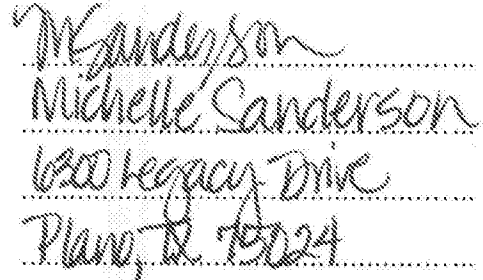 MSanderson
Michelle Sanderson
6300 Legacy Drive
Plano, TX 75024